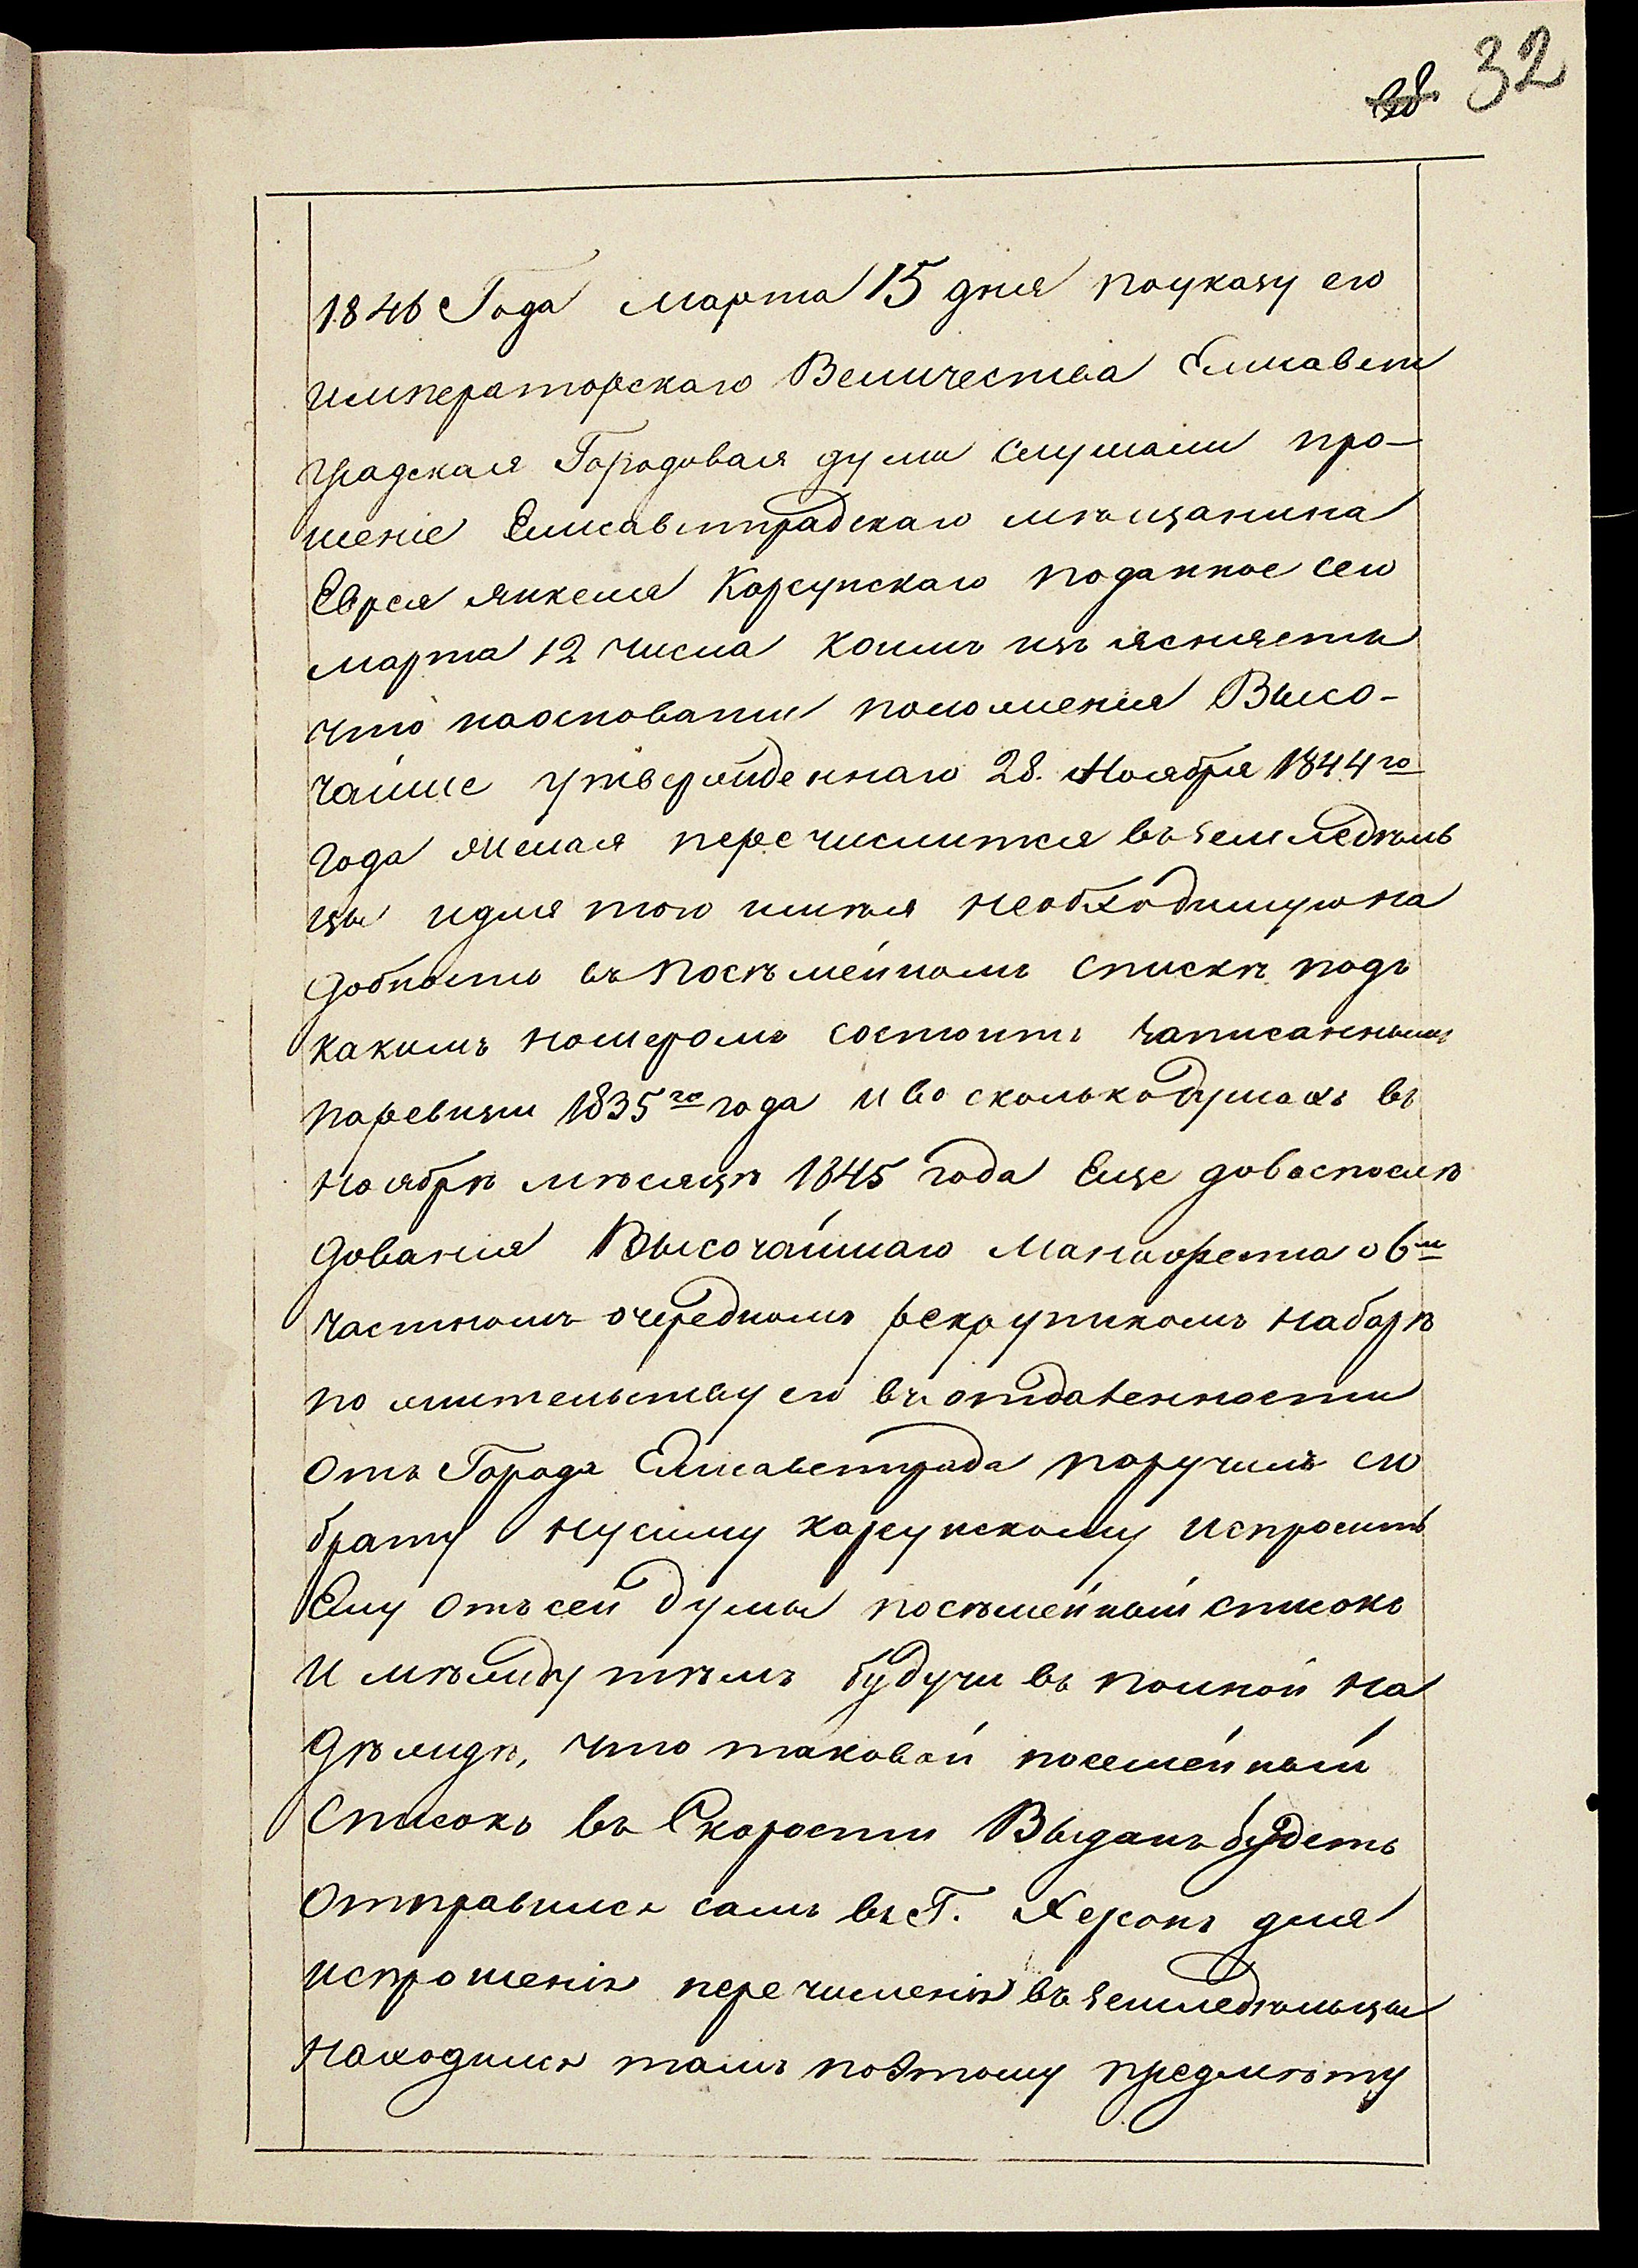 32
1846 Года Марта 15 дня поуказу его
императорскаго Величества Елисавет
градская Городовая дума слушали про-
шеніе Елисаветградскаго мѣщанина
Еврея Янкеля Корсунскаго поданное сего
марта 12 числа коимъ изъясняетъ
что наосновании положения Высо-
чайше утвержденнаго 28. Ноября 1844го
года желая перечислится въземледѣль
цы идля того имѣя необходимую на
добность въ посѣмейномъ спискѣ подъ
какимъ номеромъ состоитъ записаннымъ
поревизии 1835го года и во сколькодушахъ въ
Ноябрѣ мѣсяцѣ 1845 года Еще довоспослѣ
дования Высочайшаго Манифеста о 6м
частномъ очередномъ рекрутскомъ наборѣ
по жительству его въ отдаленности
отъ Города Елисаветграда поручилъ
брату Нусиму Корсунскому испросить
Ему отъсей думы посѣмейный списокъ
и мѣжду тѣмъ будучи въ полной на
дѣжде, что таковой посемейный
списокъ въ Скорости Выданъ будетъ
отправился самъ въ Г. Херсонъ для
испрошенія перечисленія въ земледѣльцы
Находился тамъ поэтому предмѣту